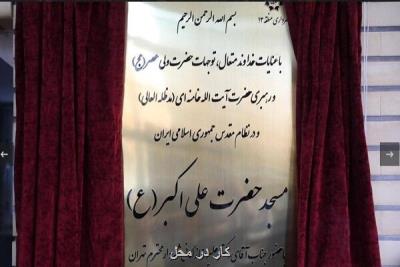 شهرداری منطقه ۱۳
بسم الله الرحمن الرحیم
با عنایات خداوند متعال، توجهات حضرت ولی عصر(عج)
و رهبری حضرت آیت الله خامنه ای (مدظله العالی)
و در نظام مقدس جمهوری اسلامی ایران
مسجد حضرت علی اکبر (ع)
با حضور جناب آقای
شهردار محترم تهران
کار در محل